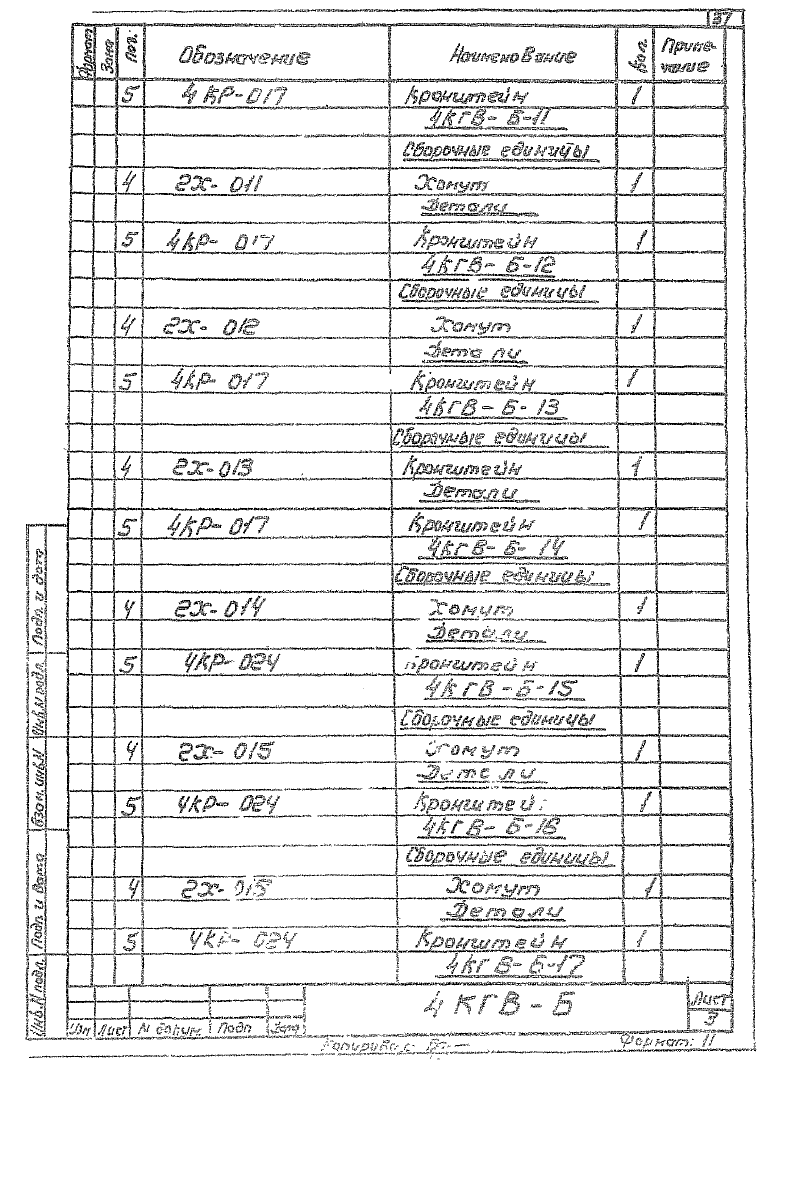 37
Формат Зона Поз. Обозначение Наименование Кол. Приме-
чание
5 4КР-017 Кронштейн 1
4КГВ-Б-11
Сборочные единицы
4 2Х-011 Хомут 1
Детали
5 4КР-017 Кронштейн 1
4КГВ-Б-12
Сборочные единицы
4 2Х-012 Хомут 1
Детали
5 4КР-017 Кронштейн 1
4КГВ-Б-13
Сборочные единицы
4 2Х-013 Кронштейн 1
Детали
5 4КР-017 Кронштейн 1
4КГВ-Б-14
Сборочные единицы
4 2Х-014 Хомут 1
Детали
5 4КР-024 Кронштейн 1
4КГВ-Б-15
Сборочные единицы
4 2Х-015 Хомут 1
Детали
5 4КР-024 Кронштей 1
4КГВ-Б-16
Сборочные единицы
4 2Х-015 Хомут 1
Детали
5 4КР-024 Кронштейн 1
4КГВ-Б-17
Инв.N подл. Подп. и дата Взам.инв.N Инв.N дубл. Подп. и дата
4КГВ-Б
Лист
3
Изм Лист N докум. Подп Дата
Копировал Формат: 11